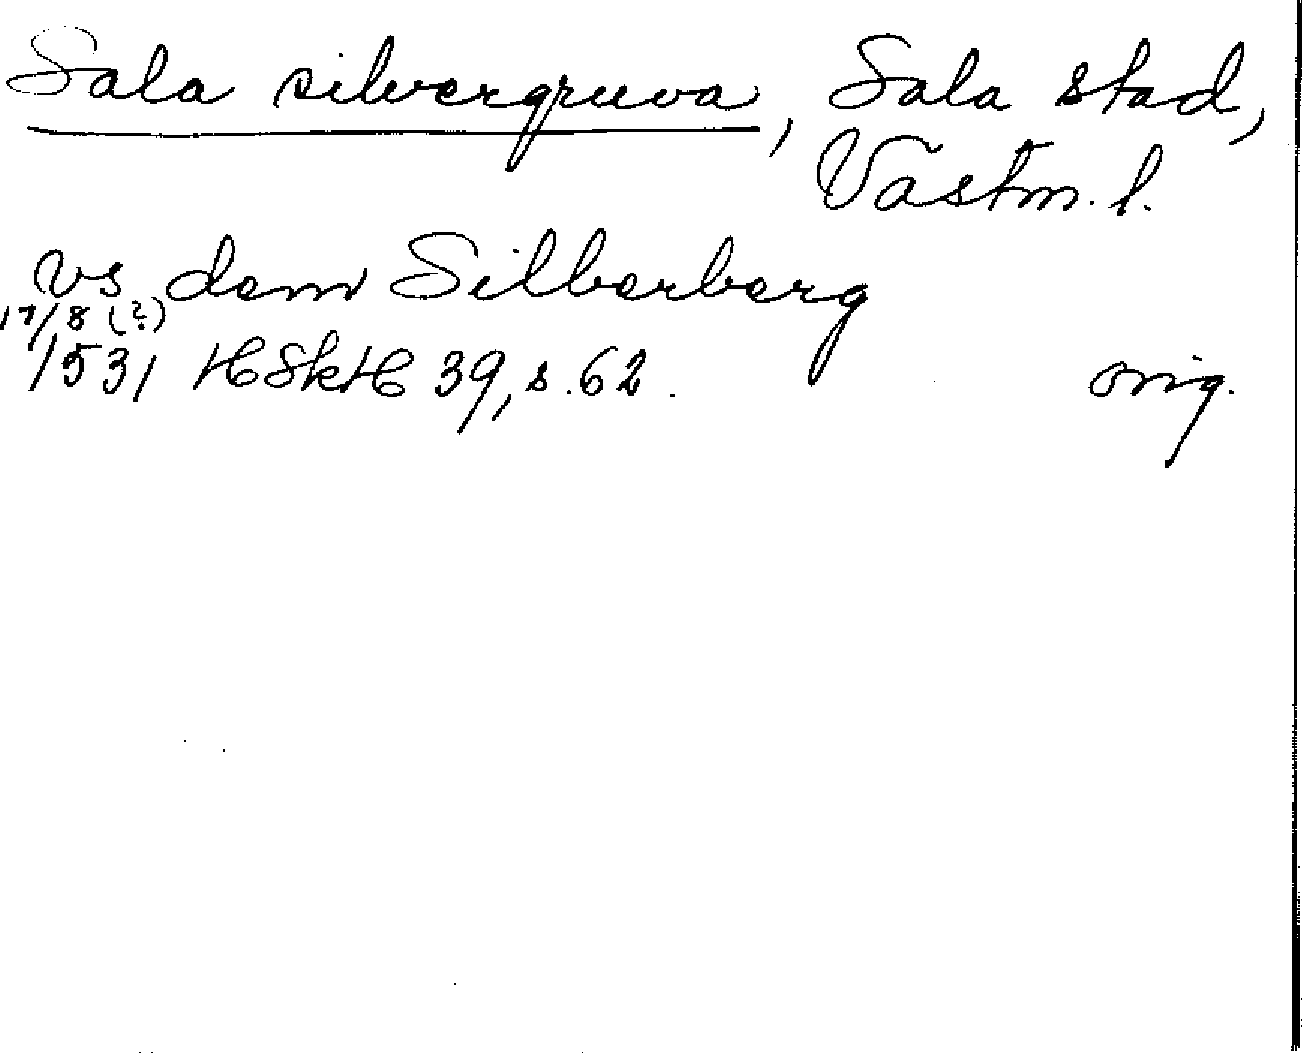 Sala silvergruva, Sala stad,
Västm. l.
vs dem Silberberg
17/8 (?)
1531 HSkH 39, s. 62.
orig.